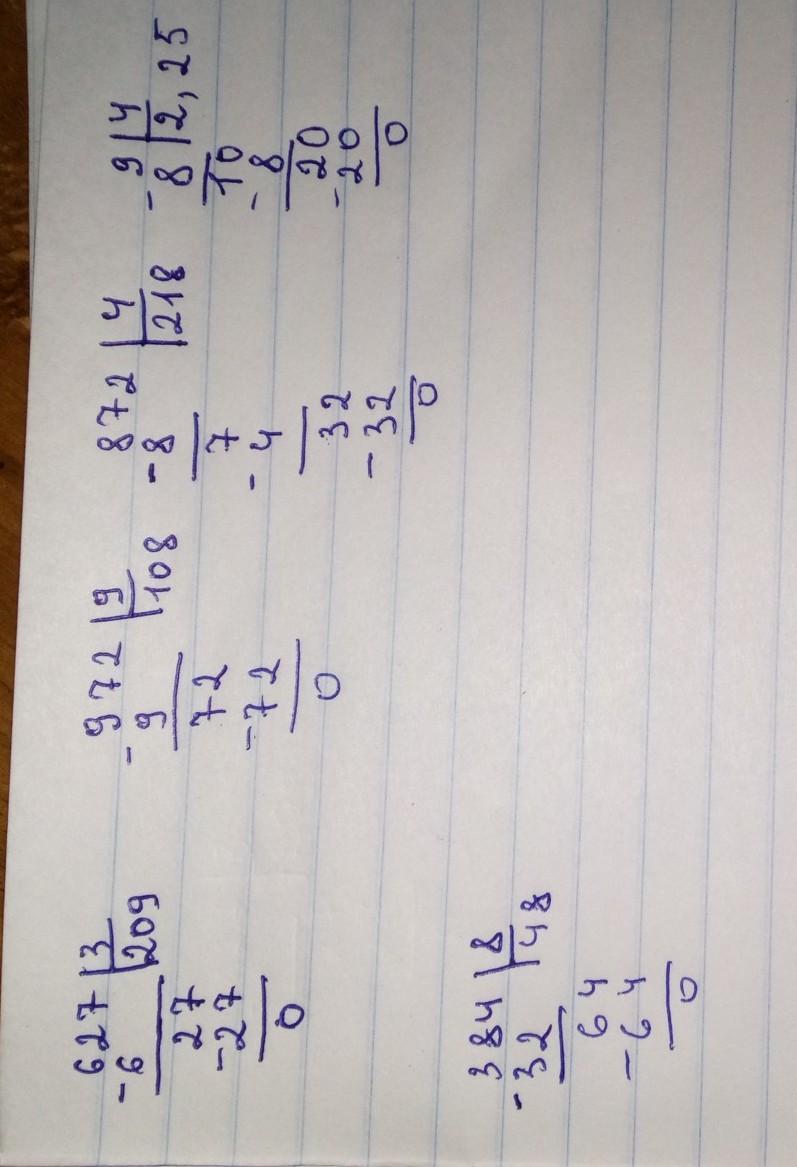 627 | 3
-6 | 209
27
-27
0
-972 | 9
9 | 108
72
-72
0
872 | 4
-8 | 218
7
-4
32
-32
0
-9 | 4
8 | 2,25
10
-8
20
-20
0
384 | 8
-32 | 48
64
-64
0